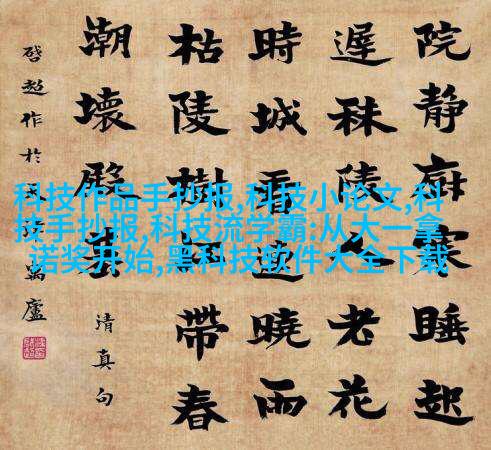 院靜廚寒睡起
遲秣陵老花
時城曉雨
枯陵樹帶春
潮壞殿
清真句
啓超作於寓廬
科技作品手抄报,科技小论文,科
技手抄报,科技流学霸:从大一拿
诺奖开始,黑科技软件大全下载